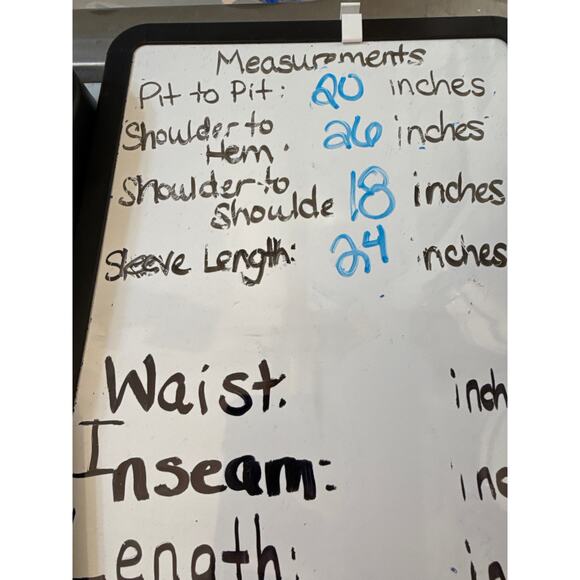 Measurements
Pit to Pit: 20 inches
Shoulder to
Hem. 26 inches
Shoulder to
Shoulde 18 inches
Sleeve Length: 24 inches
Waist: inch
Inseam: inc
Length: in